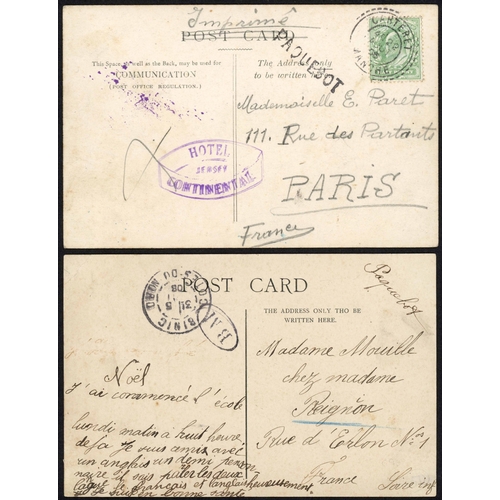 Imprimé
POST CARD
PAQUEBOT
CARTERET
This Space, as well as the Back, may be used for
COMMUNICATION
(POST OFFICE REGULATION.)
The Address only
to be written
Mademoiselle E. Paret
111. Rue des Partants
PARIS
France
HOTEL
JERSEY
CONTINENTAL
POST CARD
Paquebot
BINIC
COTES-DU-NORD
THE ADDRESS ONLY THO BE
WRITTEN HERE.
Madame Mouille
chez madame
Reignon
Rue d'Erlon No 1
France
Loire inf
Noël
J'ai commencé l'école
matin à huit heure
Je suis avec
un anglais un demi
naire il sais
français et anglais heureusement
je suis en bonne santé